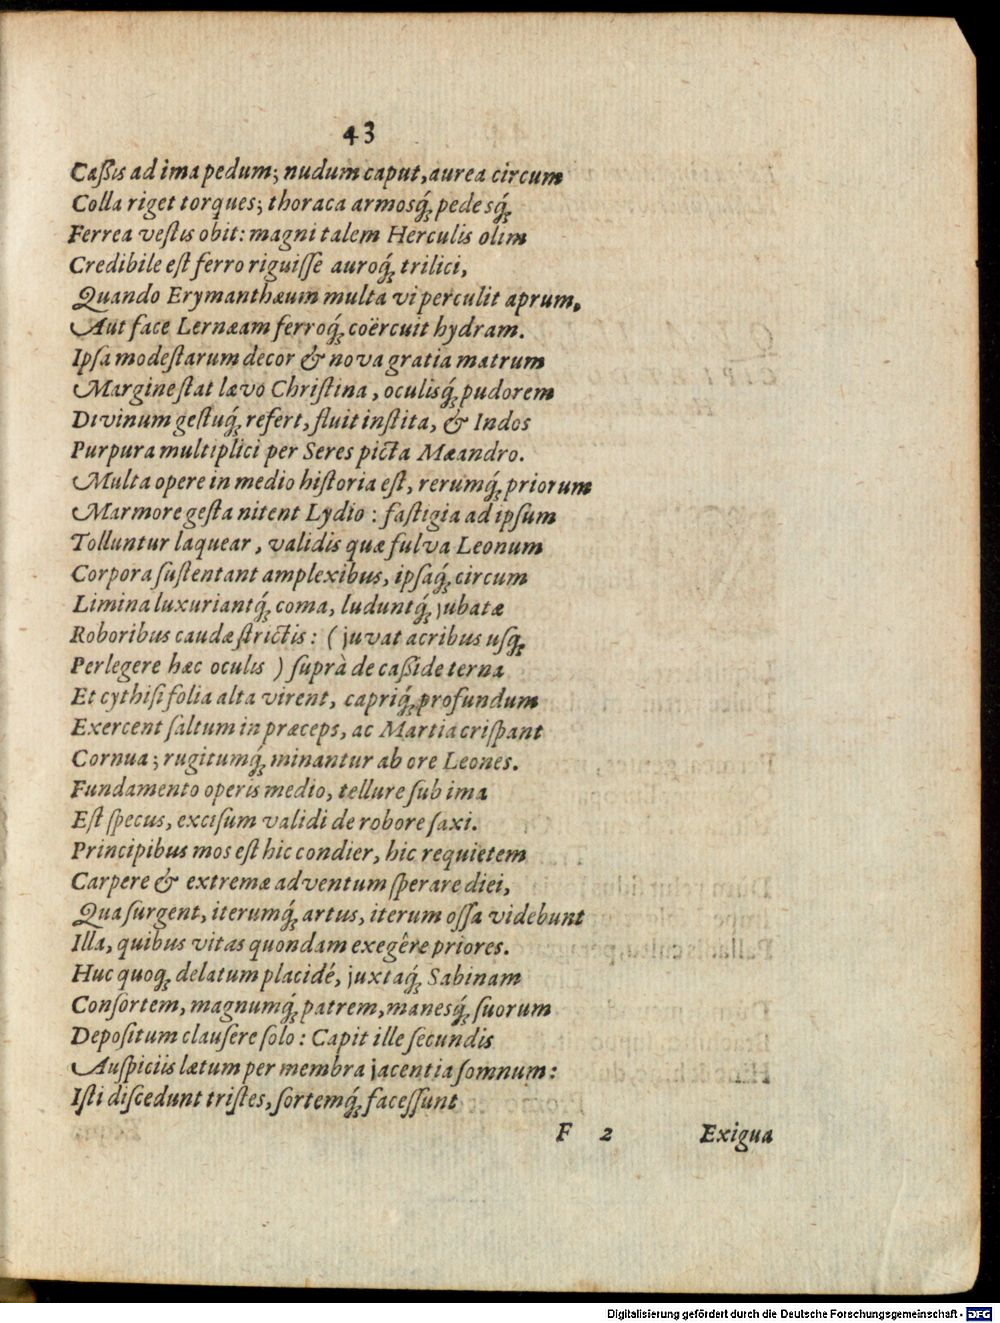 43
Caßis ad ima pedum; nudum caput, aurea circum
Colla riget torques; thoraca armosq́; pedesq́;
Ferrea vestis obit: magni talem Herculis olim
Credibile est ferro riguisse auroq́; trilici,
Quando Erymanthæum multa vi perculit aprum,
Aut face Lernæam ferroq́; coërcuit hydram.
Ipsa modestarum decor & nova gratia matrum
Margine stat lævo Christina, oculisq́; pudorem
Divinum gestuq́; refert, fluit instita, & Indos
Purpura multiplici per Seres picta Mæandro.
Multa opere in medio historia est, rerumq́; priorum
Marmore gesta nitent Lydio: fastigia ad ipsum
Tolluntur laquear, validis quæ fulva Leonum
Corpora sustentant amplexibus, ipsaq́; circum
Limina luxuriantq́; coma, luduntq́; jubatæ
Roboribus caudæ strictis: (juvat acribus usq;
Perlegere hæc oculis) suprà de caßide terna
Et cythisi folia alta virent, capriq́; profundum
Exercent saltum in præceps, ac Martia crispant
Cornua; rugitumq́; minantur ab ore Leones.
Fundamento operis medio, tellure sub ima
Est specus, excisum validi de robore saxi.
Principibus mos est hic condier, hic requietem
Carpere & extremæ adventum sperare diei,
Qua surgent, iterumq́; artus, iterum ossa videbunt
Illa, quibus vitas quondam exegêre priores.
Huc quoq; delatum placidé, juxtaq́; Sabinam
Consortem, magnumq́; patrem, manesq́; suorum
Depositum clausere solo: Capit ille secundis
Auspiciis lætum per membra jacentia somnum:
Isti discedunt tristes, sortemq́; facessunt
F 2 Exigua
Digitalisierung gefördert durch die Deutsche Forschungsgemeinschaft - DFG